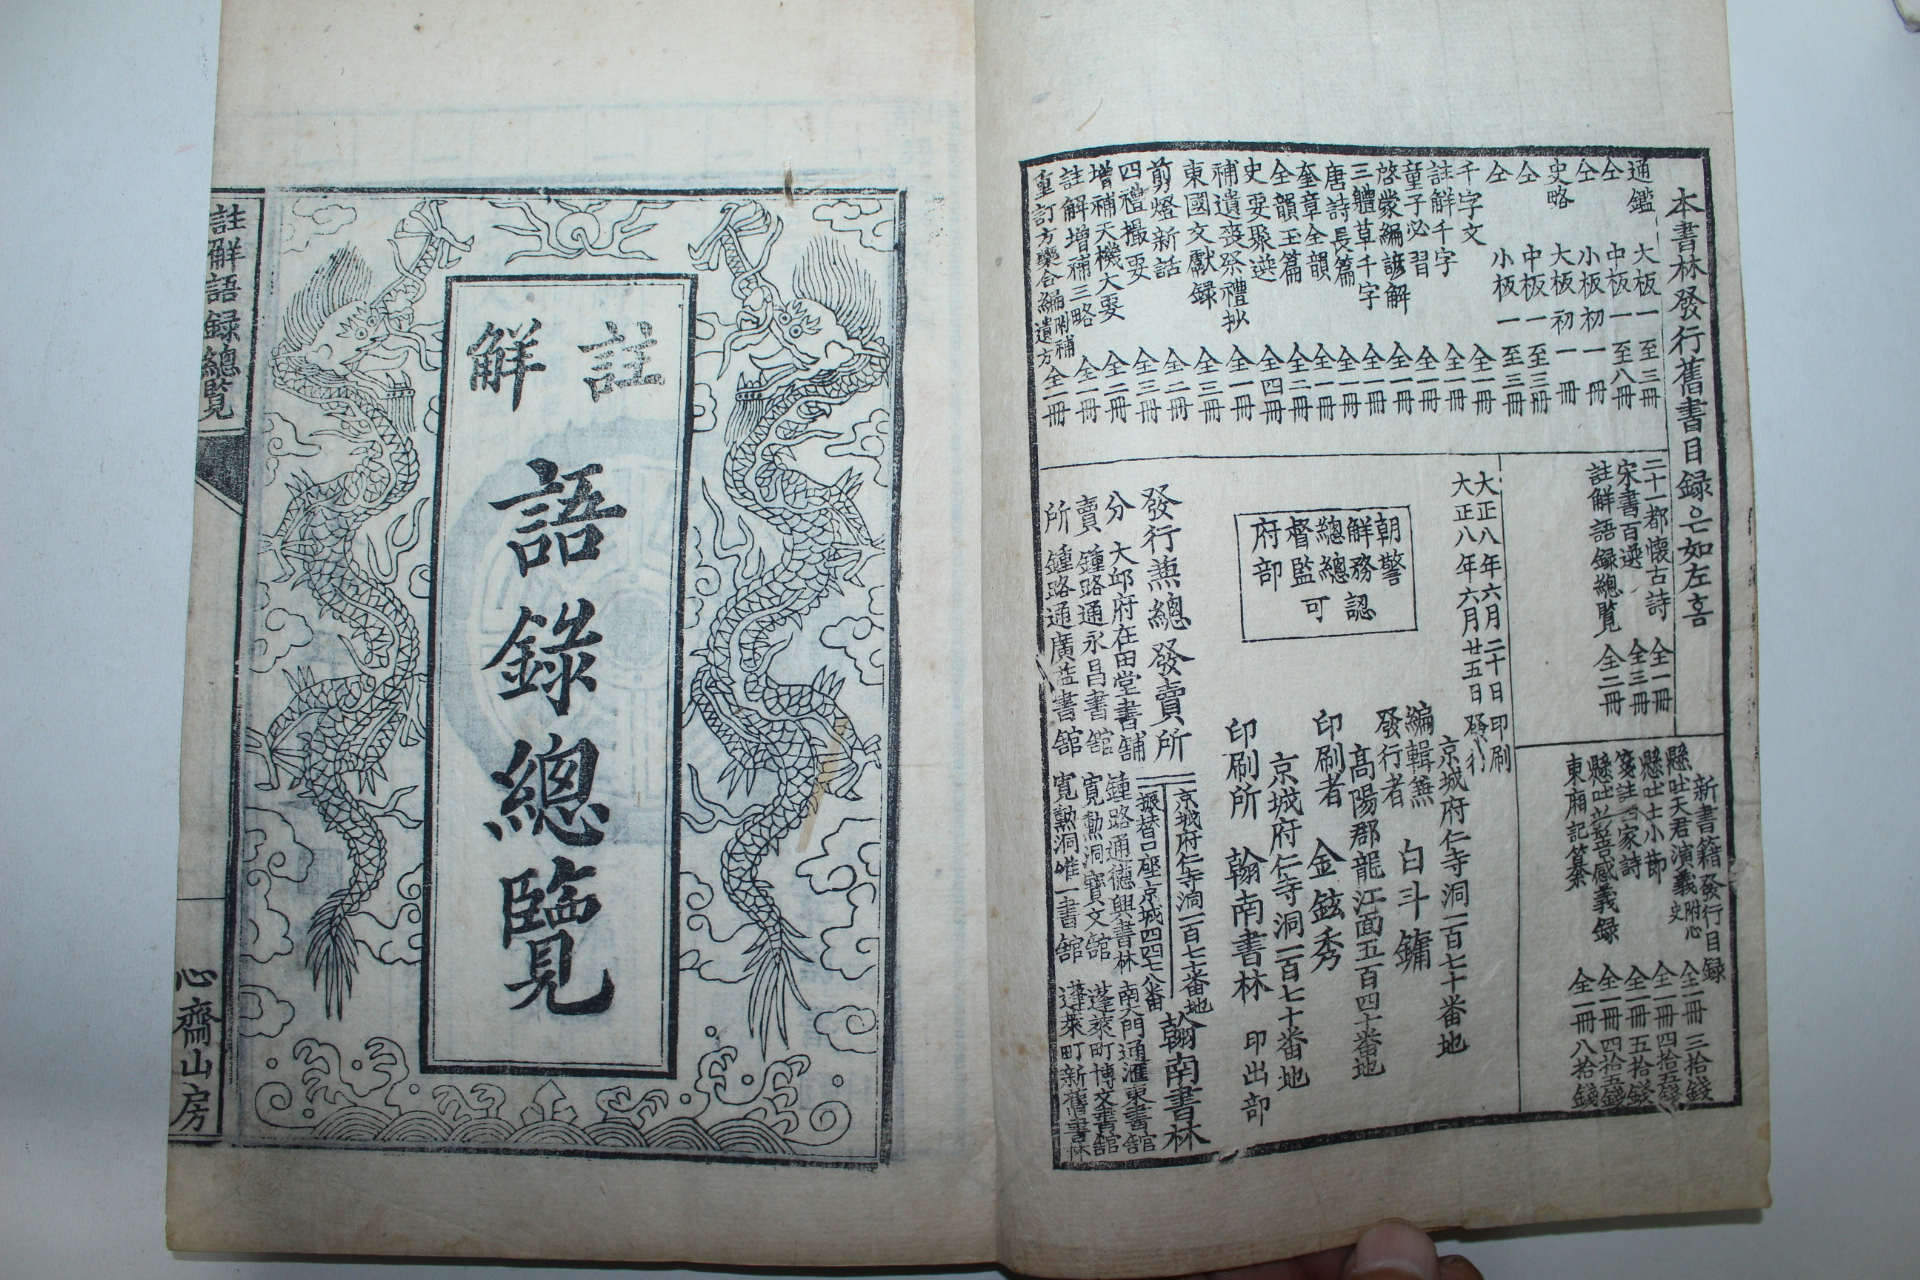 本書林發行舊書目録은如左喜
通鑑 大板 一至三冊
仝 中板 一至八冊
仝 小板 初一冊
史略 大板 初一冊
仝 中板 一至三冊
仝 小板 一至三冊
千字文 仝一冊
註解千字 仝一冊
童子必習 仝一冊
啓蒙編諺解 仝一冊
三體草千字 仝一冊
唐詩長篇 仝一冊
奎章全韻 仝一冊
全韻玉篇 仝二冊
史要聚選 仝四冊
補遺喪祭禮抄 仝一冊
東國文獻録 仝三冊
剪燈新話 仝二冊
四禮撮要 仝三冊
增補天機大要 仝二冊
註解增補三略 仝一冊
重訂方藥合編附補遺方 仝一冊
二十一都懷古詩 仝一冊
宋書百選 仝三冊
註解語録總覽 仝二冊
新書籍發行目録
懸吐天君演義附心史 仝一冊 三拾錢
懸吐士小節 仝一冊 四拾五錢
箋註百家詩 仝一冊 五拾錢
懸吐彰善感義録 仝一冊 四拾五錢
東廂記纂 仝一冊 八拾錢
大正八年六月二十日印刷
大正八年六月廿五日發行
朝鮮總督府
警務總監部
認可
京城府仁寺洞一百七十番地
編輯兼發行者 白斗鏞
高陽郡龍江面五百四十番地
印刷者 金鉉秀
京城府仁寺洞一百七十番地
印刷所 翰南書林 印出部
發行兼總發賣所
京城府仁寺洞一百七十番地
振替口座京城四四七八番
翰南書林
分賣所
大邱府在田堂書鋪 鍾路通德興書林 南大門通滙東書舘
鍾路通永昌書舘 寬勳洞寶文舘 蓬萊町博文書舘
鍾路通廣益書舘 寬勳洞唯一書舘 蓬萊町新舊書林
註解
語錄總覽
註解語録總覽
心齋山房